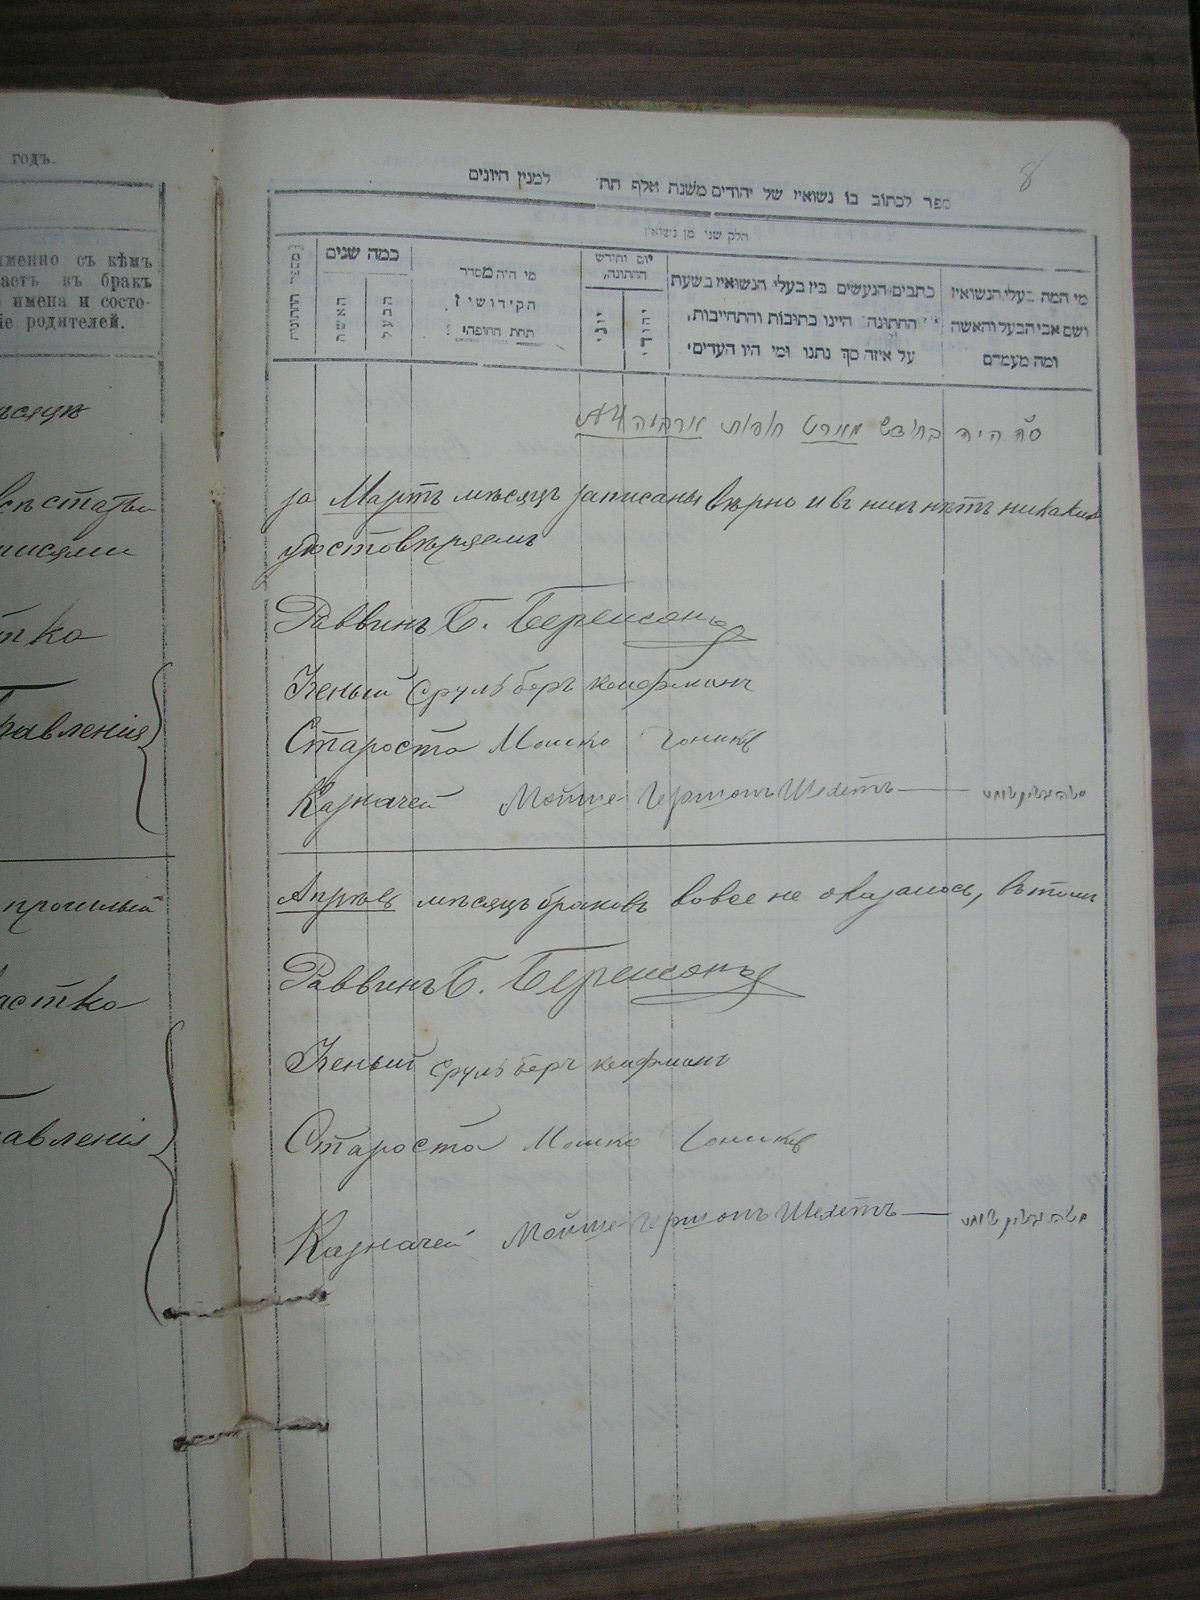 годъ.
именно съ кѣмъ
паетъ въ бракъ
имена и состо-
ніе родителей.
мѣсяцъ
всѣ статьи
писями
авленія
прошлый
астка
авленія
8
ספר לכתוב בו נשואיו של יהודים משנת אלף תת׳ למנין היונים
חלק שני מן נשואין
מי המה בעלי הנשואין
ושם אבי הבעל והאשה
ומה מעמדם
כתבים הנעשים בין בעלי הנשואיו בשעת
החתונה היינו כתובות והתחייבות,
על איזה סך נתנו ומי היו העדים׃
יום וחודש
החתונה,
יהודי
יוני
מי היה מסדר
הקידושין
תחת החופה׃
כמה שנים
הבעל
האשה
ס״ה היה בחודש מארט חופות ארבעה
за Мартъ мѣсяцъ записаны вѣрно и въ нихъ нѣтъ никакихъ
удостовѣряемъ
Раввинъ Б. Беренсонъ
Ученый Сруль Беръ Кауфманъ
Староста Мошко Гоникъ
Казначей Мойше Гершонъ Шехетъ —
Апрѣль мѣсяцъ браковъ вовсе не оказалось, въ томъ
Раввинъ Б. Беренсонъ
Ученый Сруль Беръ Кауфманъ
Староста Мошко Гоникъ
Казначей Мойше Гершонъ Шехетъ —